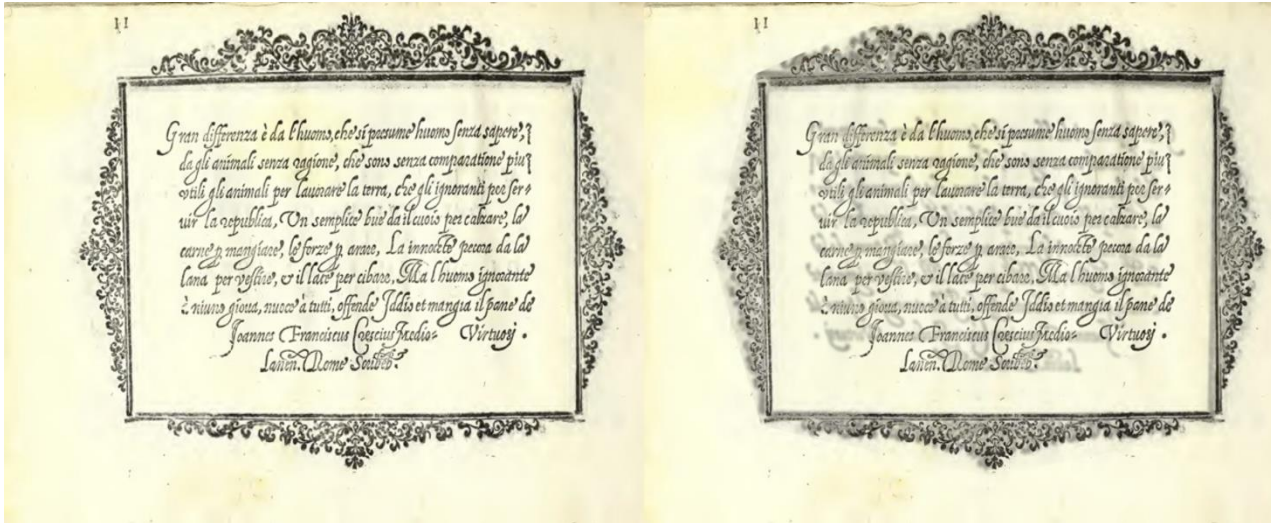 11
Gran differenza è da l'huomo, che si presume huomo senza sapere,
da gli animali senza ragione, che sono senza comparatione piu
utili gli animali per lauorare la terra, che gli ignoranti per ser-
uir la republica, Un semplice bue da il cuoio per calzare, la
carne p mangiare, le forze p arare, La innocēte pecora da la
lana per vestire, et il latte per cibare. Ma l'huomo ignorante
è niuno gioua, nuoce à tutti, offende Iddio et mangia il pane de
Joannes Franciscus Crescius Medio- Virtuosi.
Lanen. Rome Scribeb.
11
Gran differenza è da l'huomo, che si presume huomo senza sapere,
da gli animali senza ragione, che sono senza comparatione piu
utili gli animali per lauorare la terra, che gli ignoranti per ser-
uir la republica, Un semplice bue da il cuoio per calzare, la
carne p mangiare, le forze p arare, La innocēte pecora da la
lana per vestire, et il latte per cibare. Ma l'huomo ignorante
è niuno gioua, nuoce à tutti, offende Iddio et mangia il pane de
Joannes Franciscus Crescius Medio- Virtuosi.
Lanen. Rome Scribeb.